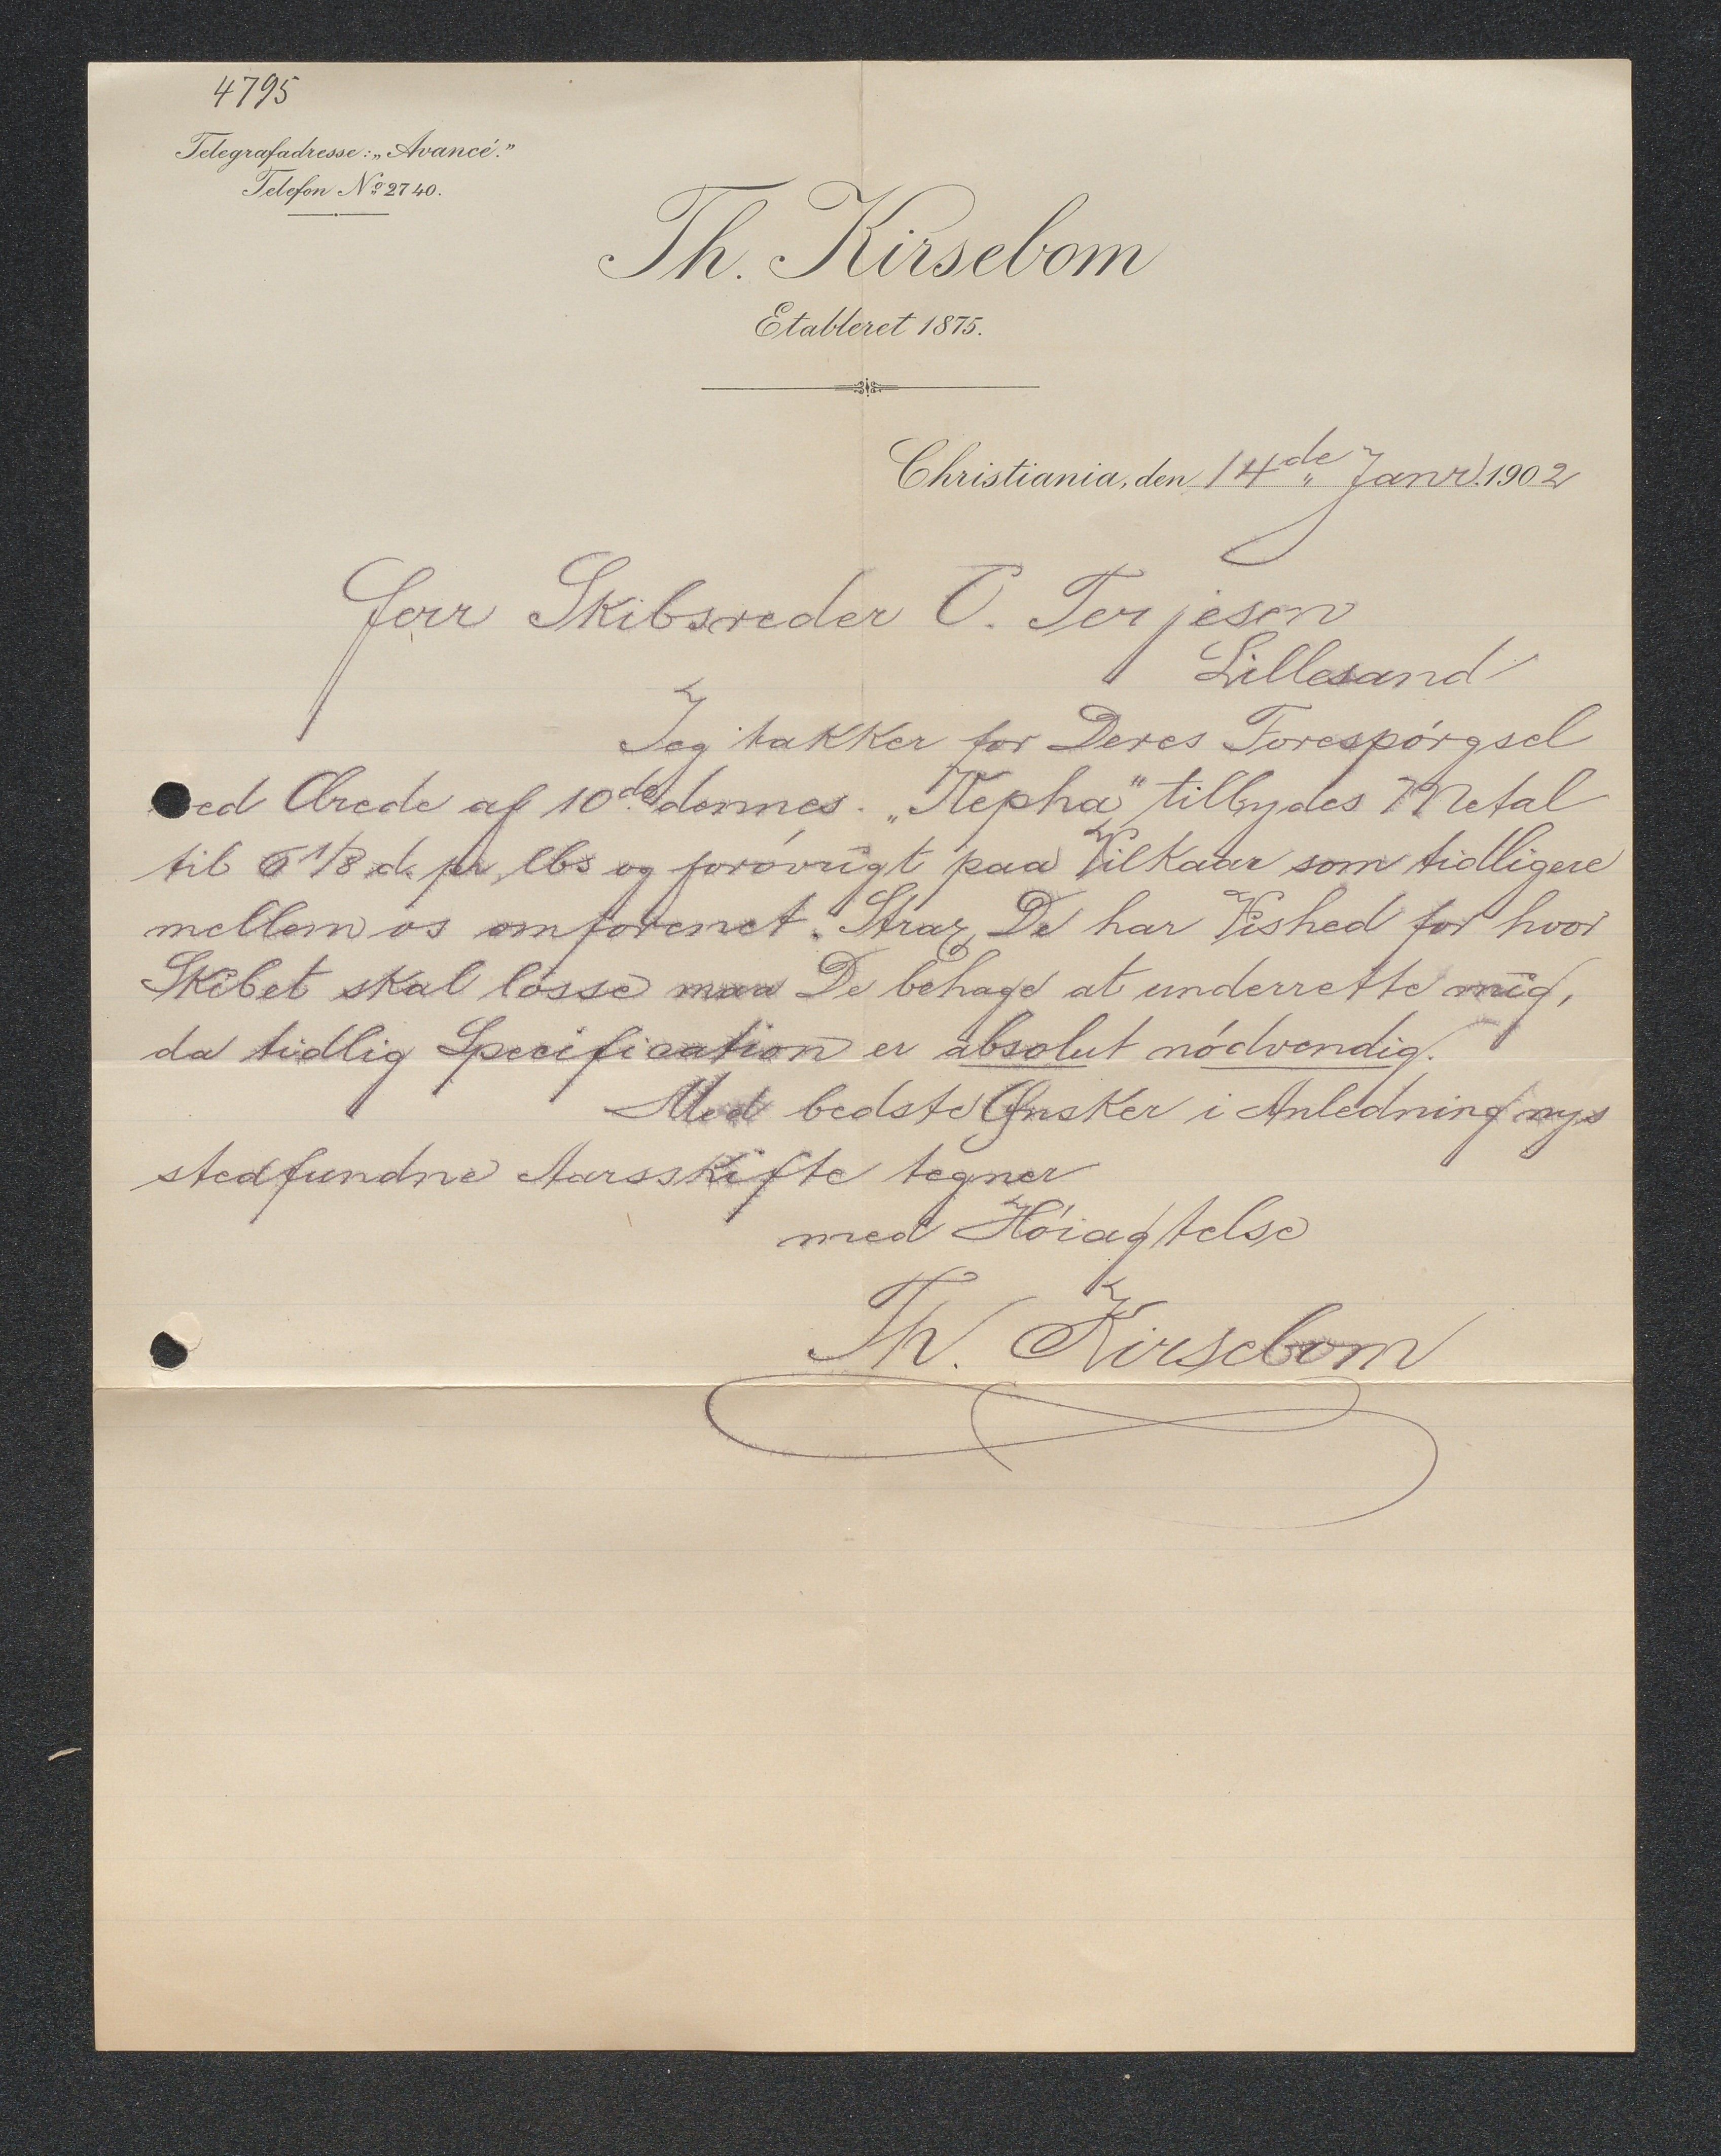 4795
Telegrafadresse: „Avancé."
Telefon No 2740.
Th. Kirsebom
Etableret 1875.
Christiania, den 14de Janr. 1902
Herr Skibsreder O. Terjesen
Lillesand
Jeg takker for Deres Forespørgsel
ved Ærede af 10de dennes. „Kepha" tilbydes Metal
til 6 1/8 d. pr lbs og forøvrigt paa Vilkaar som tidligere
mellem os omforenet. Strax De har Vished for hvor
Skibet skal løsse maa De behage at underrette mig,
da tidlig Specification er absolut nødvendig.
Med bedste Ønsker i Anledning nys
stedfundne Aarsskifte tegner
med Høiagtelse
Th. Kirsebom